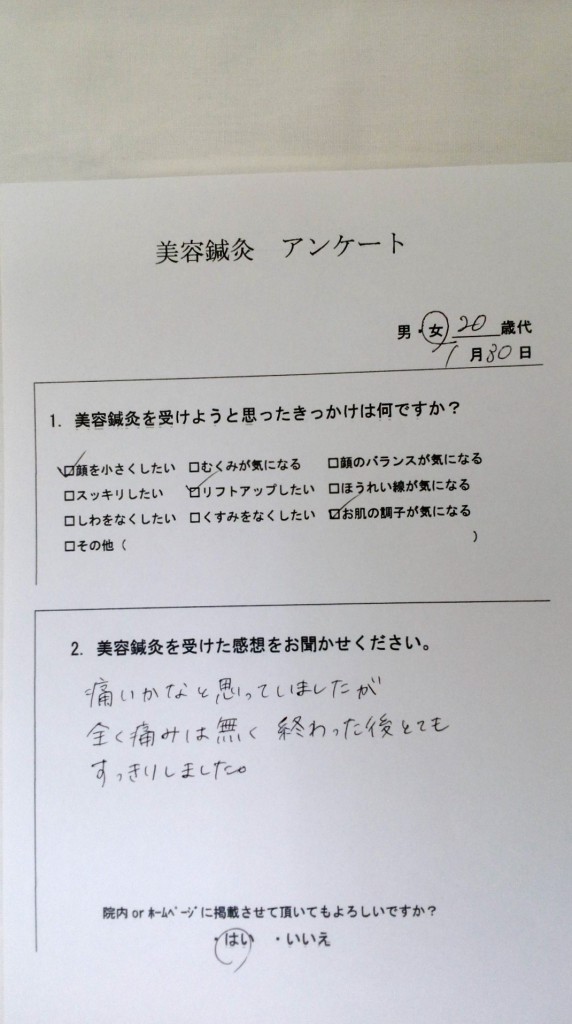 美容鍼灸 アンケート
男・女 20 歳代
1月30日
1. 美容鍼灸を受けようと思ったきっかけは何ですか？
☑顔を小さくしたい □むくみが気になる □顔のバランスが気になる
□スッキリしたい ☑リフトアップしたい □ほうれい線が気になる
□しわをなくしたい □くすみをなくしたい ☑お肌の調子が気になる
□その他（ ）
2. 美容鍼灸を受けた感想をお聞かせください。
痛いかなと思っていましたが
全く痛みは無く 終わった後とても
すっきりしました。
院内 or ﾎｰﾑﾍﾟｰｼﾞに掲載させて頂いてもよろしいですか？
・はい ・いいえ